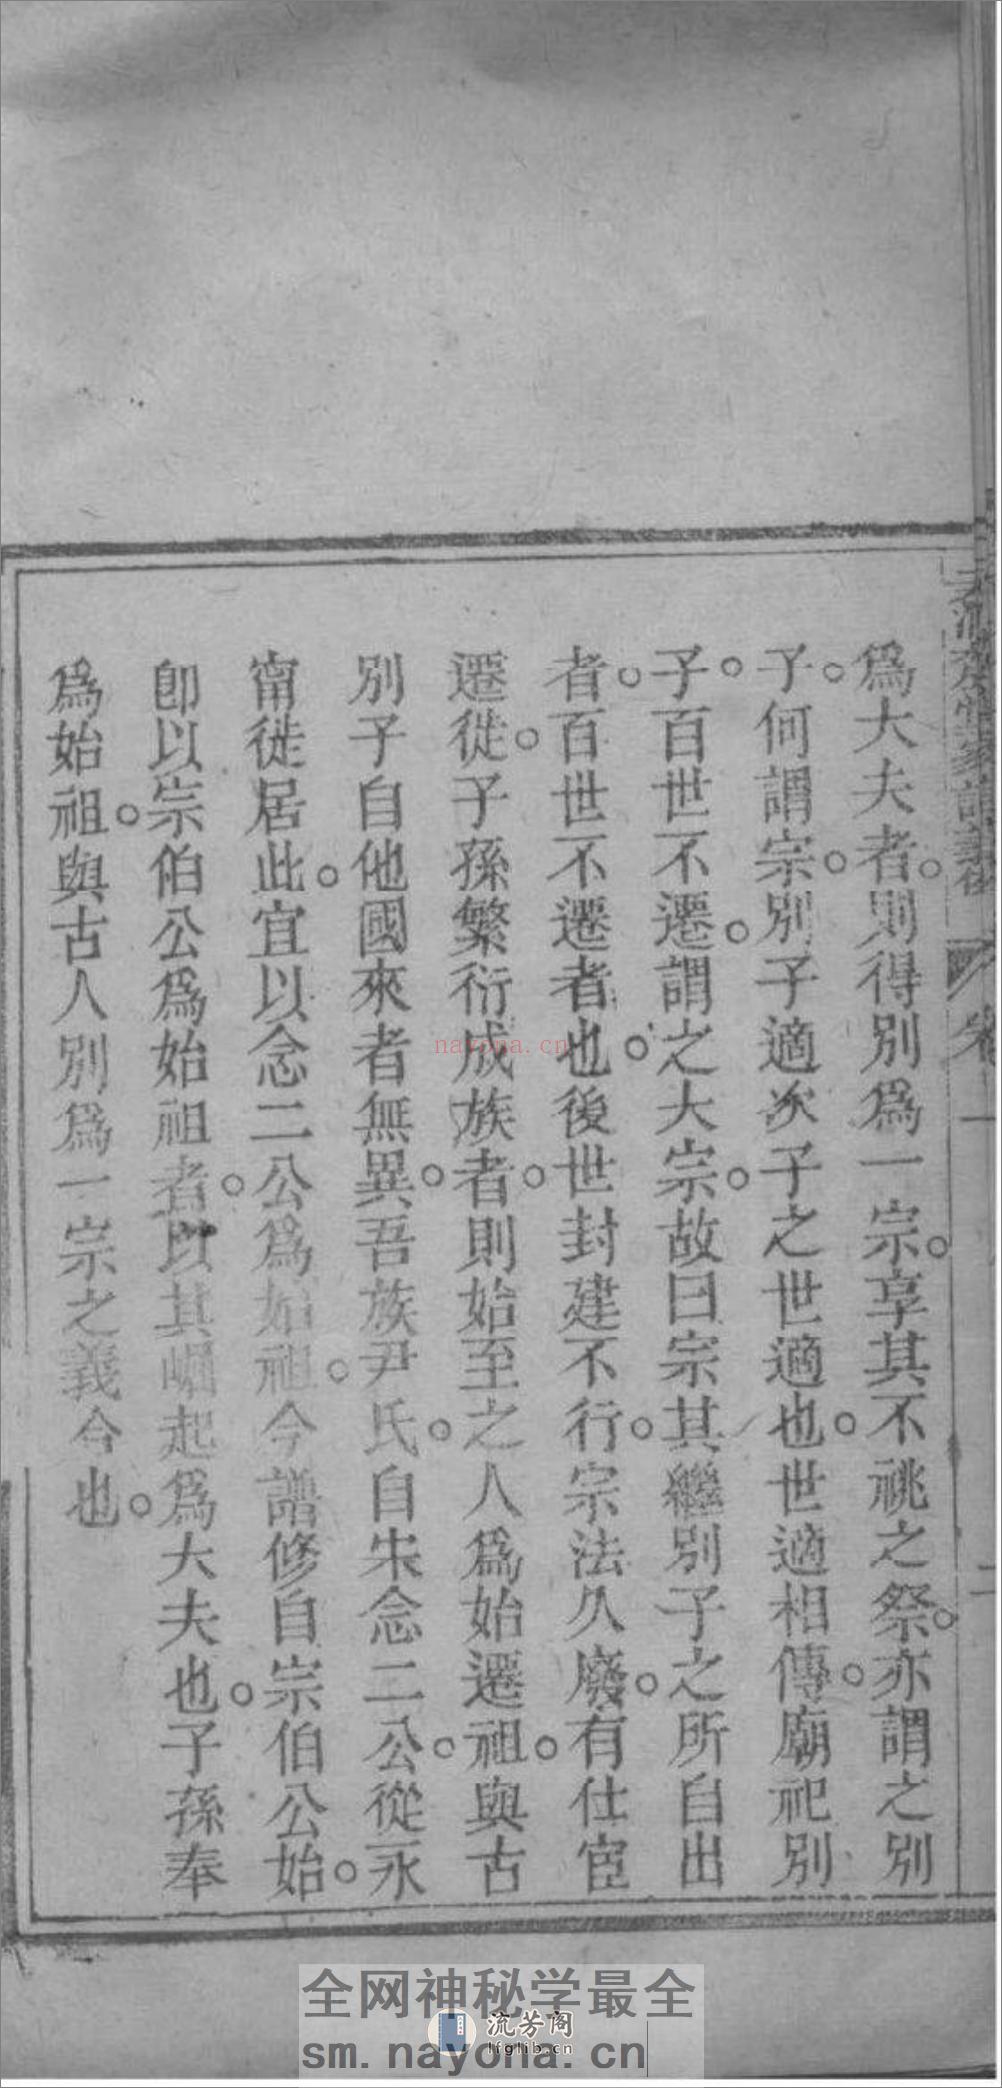 爲大夫者。則得別爲一宗。享其不祧之祭。亦謂之別
子。何謂宗。別子適次子之世適也。世適相傳。廟祀別
子。百世不遷。謂之大宗。故曰宗其繼別子之所自出
者。百世不遷者也。後世封建不行。宗法久廢。有仕宦
遷徙。子孫繁衍成族者。則始至之人爲始遷祖。與古
別子自他國來者無異。吾族尹氏。自宋念二公。從永
甯徙居此。宜以念二公爲始祖。今譜修自宗伯公始。
卽以宗伯公爲始祖者。以其崛起爲大夫也。子孫奉
爲始祖。與古人別爲一宗之義今也。
卷一
二
nayona.cn
全网神秘学最全
流芳阁
lfglib.cn
sm.nayona.cn